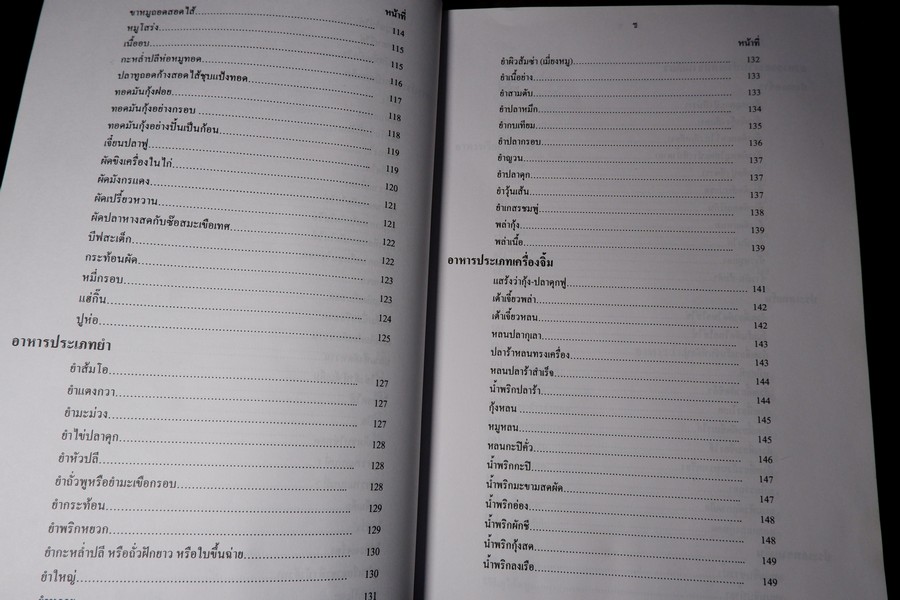 หน้าที่
ขาหมูถอดสอดไส้ 114
หมูโสร่ง 115
เนื้ออบ 115
กะหล่ำปลีห่อหมูทอด 116
ปลาทูถอดก้างสอดไส้ชุบแป้งทอด 117
ทอดมันกุ้งฝอย 118
ทอดมันกุ้งอย่างกรอบ 118
ทอดมันกุ้งอย่างปั้นเป็นก้อน 119
เจี๋ยนปลาฟู 119
ผัดขิงเครื่องในไก่ 120
ผัดมังกรแดง 121
ผัดเปรี้ยวหวาน 121
ผัดปลาหางสดกับซ๊อสมะเขือเทศ 122
บีฟสะเต็ก 122
กระท้อนผัด 123
หมี่กรอบ 123
แฮ่กึ๊น 124
ปูห่อ 125
อาหารประเภทยำ
ยำส้มโอ 127
ยำแตงกวา 127
ยำมะม่วง 127
ยำไข่ปลาดุก 128
ยำหัวปลี 128
ยำถั่วพูหรือยำมะเขือกรอบ 128
ยำกระท้อน 129
ยำพริกหยวก 129
ยำกะหล่ำปลี หรือถั่วฝักยาว หรือใบขึ้นฉ่าย 130
ยำใหญ่ 130
131
ร
หน้าที่
ยำผิวส้มซ่า (เมี่ยงหมู) 132
ยำเนื้อย่าง 133
ยำสามดับ 133
ยำปลาหมึก 134
ยำกบเทียม 135
ยำปลากรอบ 136
ยำญวน 137
ยำปลาดุก 137
ยำวุ้นเส้น 137
ยำเกสรชมพู่ 138
พล่ากุ้ง 139
พล่าเนื้อ 139
อาหารประเภทเครื่องจิ้ม
แสร้งว่ากุ้ง-ปลาดุกฟู 141
เต้าเจี้ยวพล่า 142
เต้าเจี้ยวหลน 142
หลนปลากุเลา 143
ปลาร้าหลนทรงเครื่อง 143
หลนปลาร้าสำเร็จ 144
น้ำพริกปลาร้า 144
กุ้งหลน 145
หมูหลน 145
หลนกะปิคั่ว 146
น้ำพริกกะปิ 147
น้ำพริกมะขามสดผัด 147
น้ำพริกอ่อง 148
น้ำพริกผักชี 148
น้ำพริกกุ้งสด 149
น้ำพริกลงเรือ 149